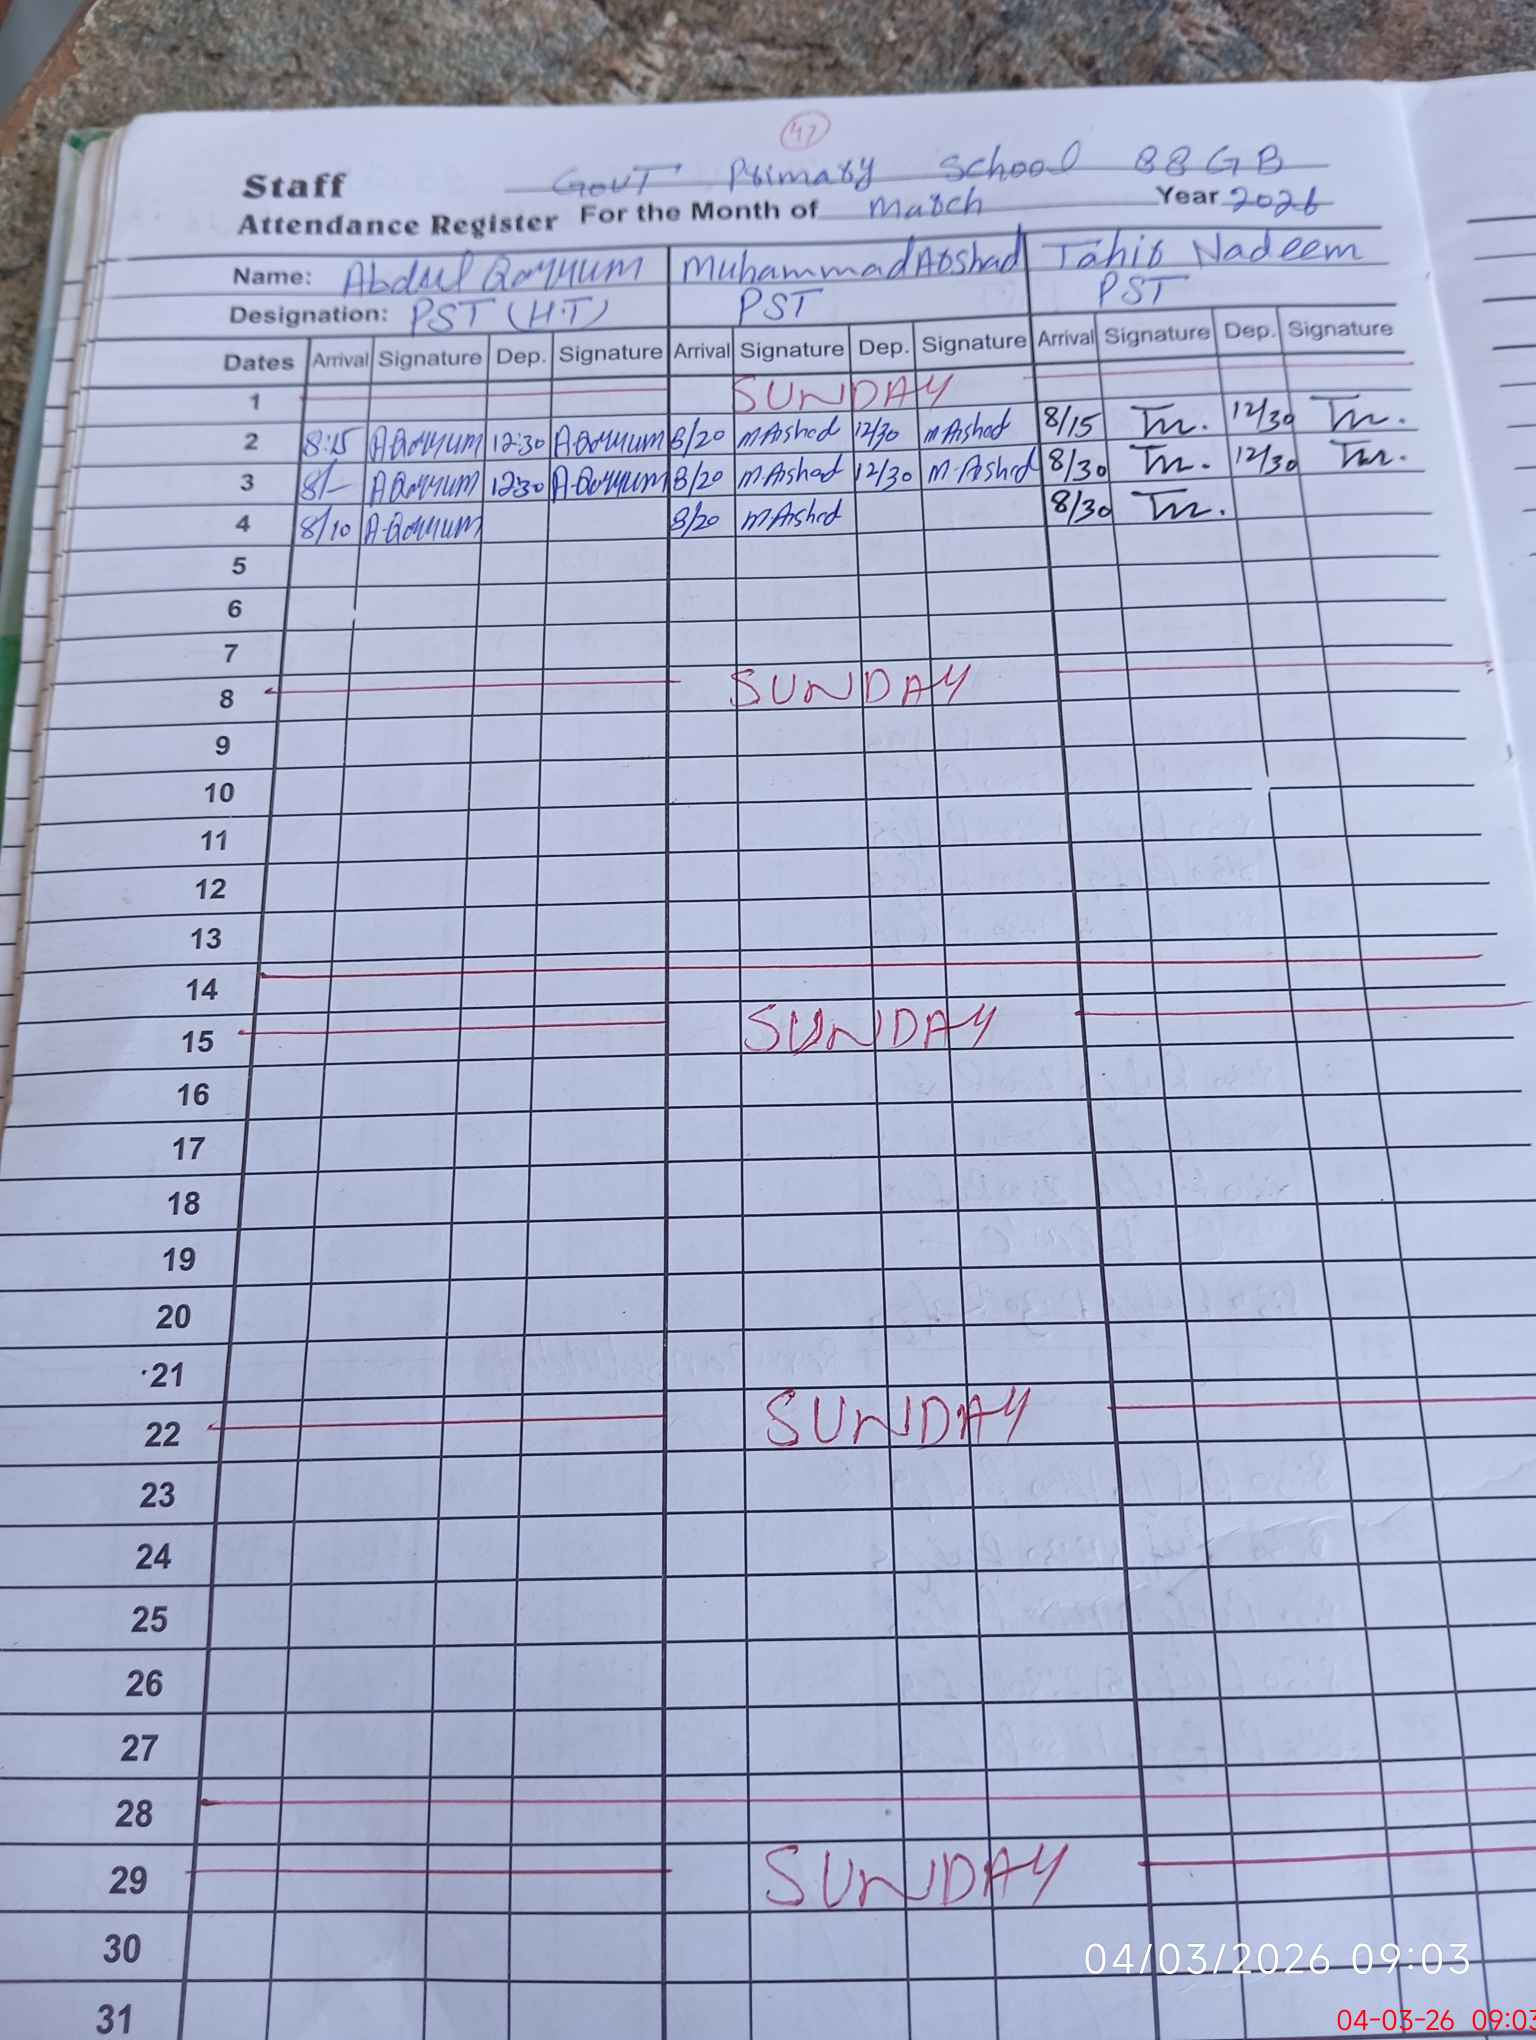 47
Staff Govt Primary School 88 GB
Attendance Register For the Month of March Year 2026
Name: Abdul Qayyum Muhammad Arshad Tahir Nadeem
Designation: PST (H.T) PST PST
Dates Arrival Signature Dep. Signature Arrival Signature Dep. Signature Arrival Signature Dep. Signature
1 SUNDAY
2 8:15 A.Qayyum 12:30 A.Qayyum 8/20 M Arshad 12/30 M Arshad 8/15 Tn. 12/30 Tn.
3 8/- A.Qayyum 12:30 A.Qayyum 8/20 M Arshad 12/30 M.Arshad 8/30 Tn. 12/30 Tn.
4 8/10 A.Qayyum 8/20 M Arshad 8/30 Tn.
5
6
7
8 SUNDAY
9
10
11
12
13
14
15 SUNDAY
16
17
18
19
20
21
22 SUNDAY
23
24
25
26
27
28
29 SUNDAY
30
31
04/03/2026 09:03
04-03-26 09:03